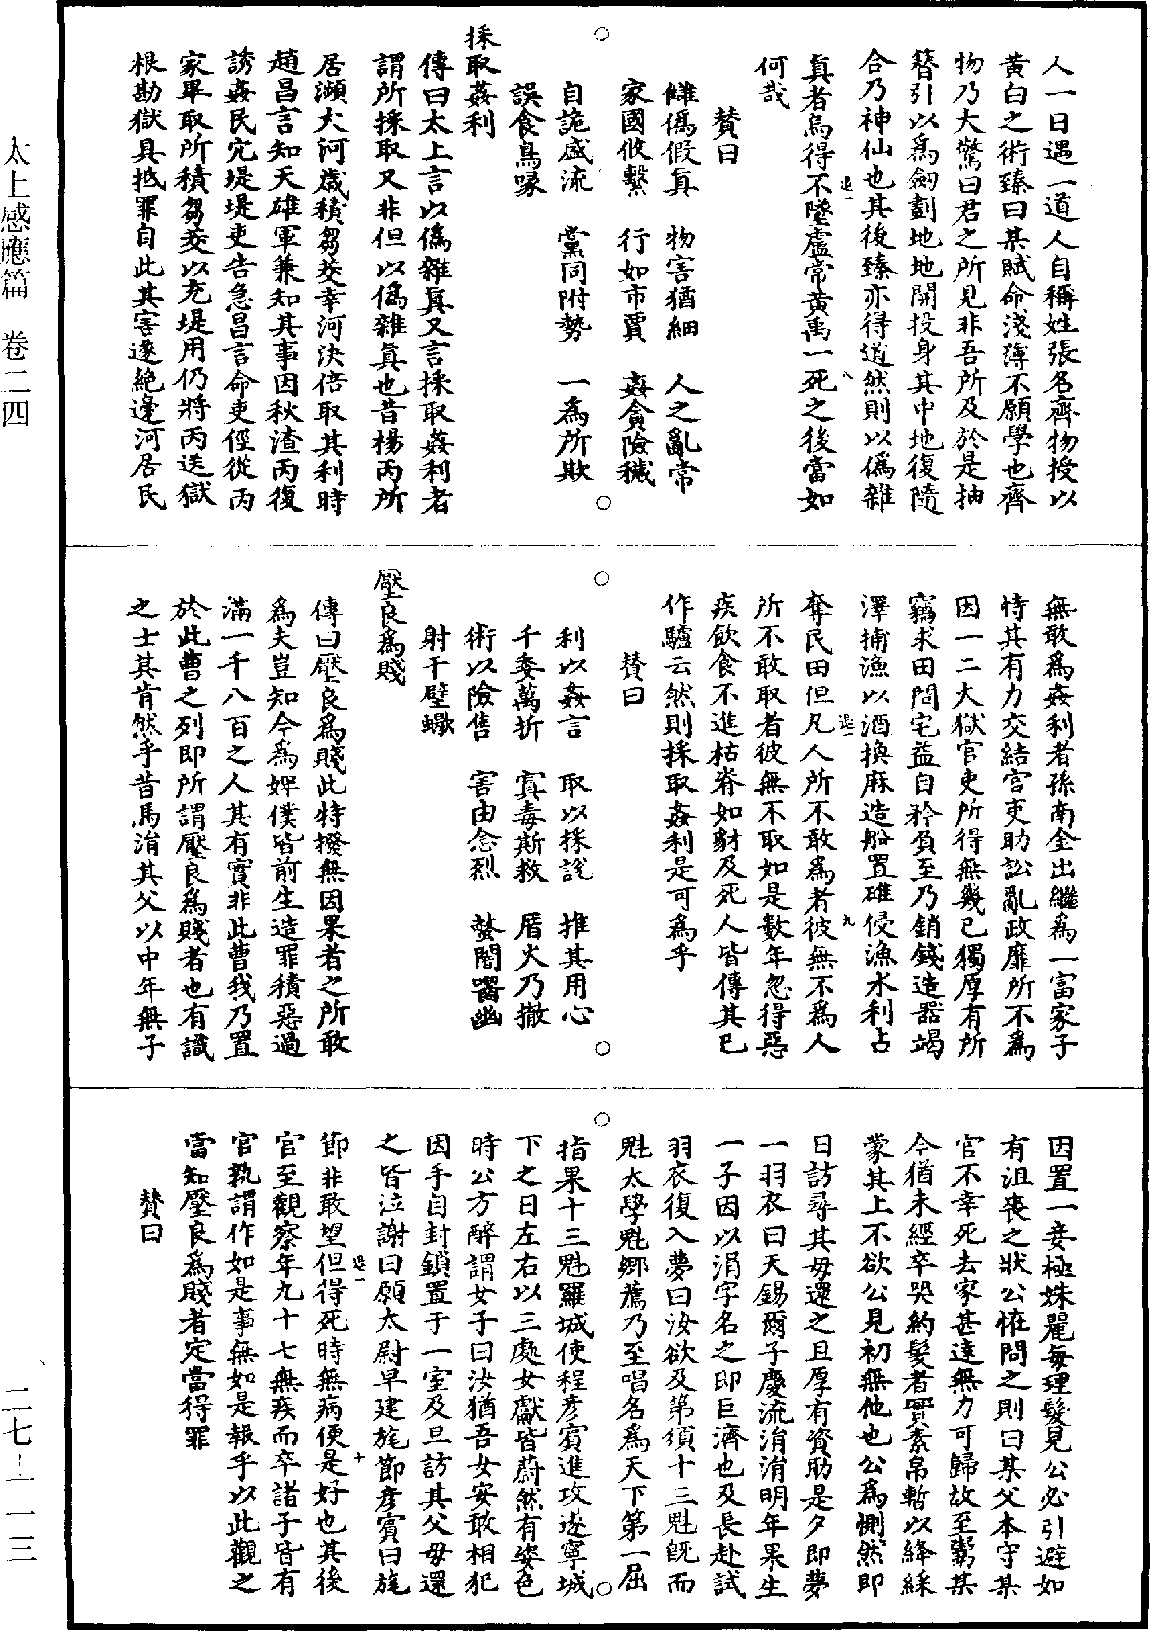 太上感應篇　卷二四
二七—一一三
人一日遇一道人自稱姓張名齊物授以
黃白之術臻曰某賦命淺薄不願學也齊
物乃大驚曰君之所見非吾所及於是抽
簪引以爲劒劃地地開投身其中地復隨
合乃神仙也其後臻亦得道然則以僞雜
真者烏得不墜盧常黃禹一死之後當如
何哉
贊曰
雠僞假真　物害猶細　人之亂常
家國攸繫　行如市賈　姦貪險穢
自詭盛流　黨同附勢　一爲所欺
誤食鳥喙
採取姦利
傳曰太上言以僞雜真又言採取姦利者
謂所採取又非但以僞雜真也昔楊丙所
居瀕大河歲積芻茭幸河決倍取其利時
趙昌言知天雄軍兼知其事因秋潦丙復
誘姦民宂堤堤吏告急昌言命吏徑從丙
家畢取所積芻茭以充堤用仍將丙送獄
根勘獄具抵罪自此其害遂絶邊河居民
無敢爲姦利者孫南金出繼爲一富家子
恃其有力交結官吏助訟亂政靡所不爲
因一二大獄官吏所得無幾已獨厚有所
竊求田問宅益自矜負至乃銷錢造器竭
澤捕漁以酒換麻造船置碓侵漁水利占
奪民田但凡人所不敢爲者彼無不爲人
所不敢取者彼無不取如是數年忽得惡
疾飲食不進枯瘠如豺及死人皆傳其已
作驢云然則採取姦利是可爲乎
贊曰
利以姦言　取以採說　推其用心
千委萬折　寘毒斯救　厝火乃撤
術以險售　害由念烈　蝥閽嚣幽
射干壁蝎
壓良爲賤
傳曰壓良爲賤此特撥無因果者之所敢
爲夫豈知今爲婢僕皆前生造罪積惡過
滿一千八百之人其有實非此曹我乃置
於此曹之列即所謂壓良爲賤者也有識
之士其肯然乎昔馬涓其父以中年無子
因置一妾極姝麗每理髮見公必引避如
有沮喪之狀公恠問之則曰某父本守某
官不幸死去家甚遠無力可歸故至鬻某
今猶未經卒哭約髮者實素帛暫以絳綵
蒙其上不欲公見初無他也公爲惻然即
日訪尋其母還之且厚有資助是夕即夢
一羽衣曰天錫爾子慶流涓涓明年果生
一子因以涓字名之即巨濟也及長赴試
羽衣復入夢曰汝欲及第須十三魁旣而
魁太學魁鄉薦乃至唱名爲天下第一屈
指果十三魁羅城使程彥賓進攻遂寧城
下之日左右以三處女獻皆蔚然有姿色
時公方醉謂女子曰汝猶吾女安敢相犯
因手自封鎖置于一室及旦訪其父母還
之皆泣謝曰願太尉早建旄節彥賓曰旄
節非敢望但得死時無病便是好也其後
官至觀察年九十七無疾而卒諸子皆有
官孰謂作如是事無如是報乎以此觀之
當知壓良爲賤者定當得罪
贊曰